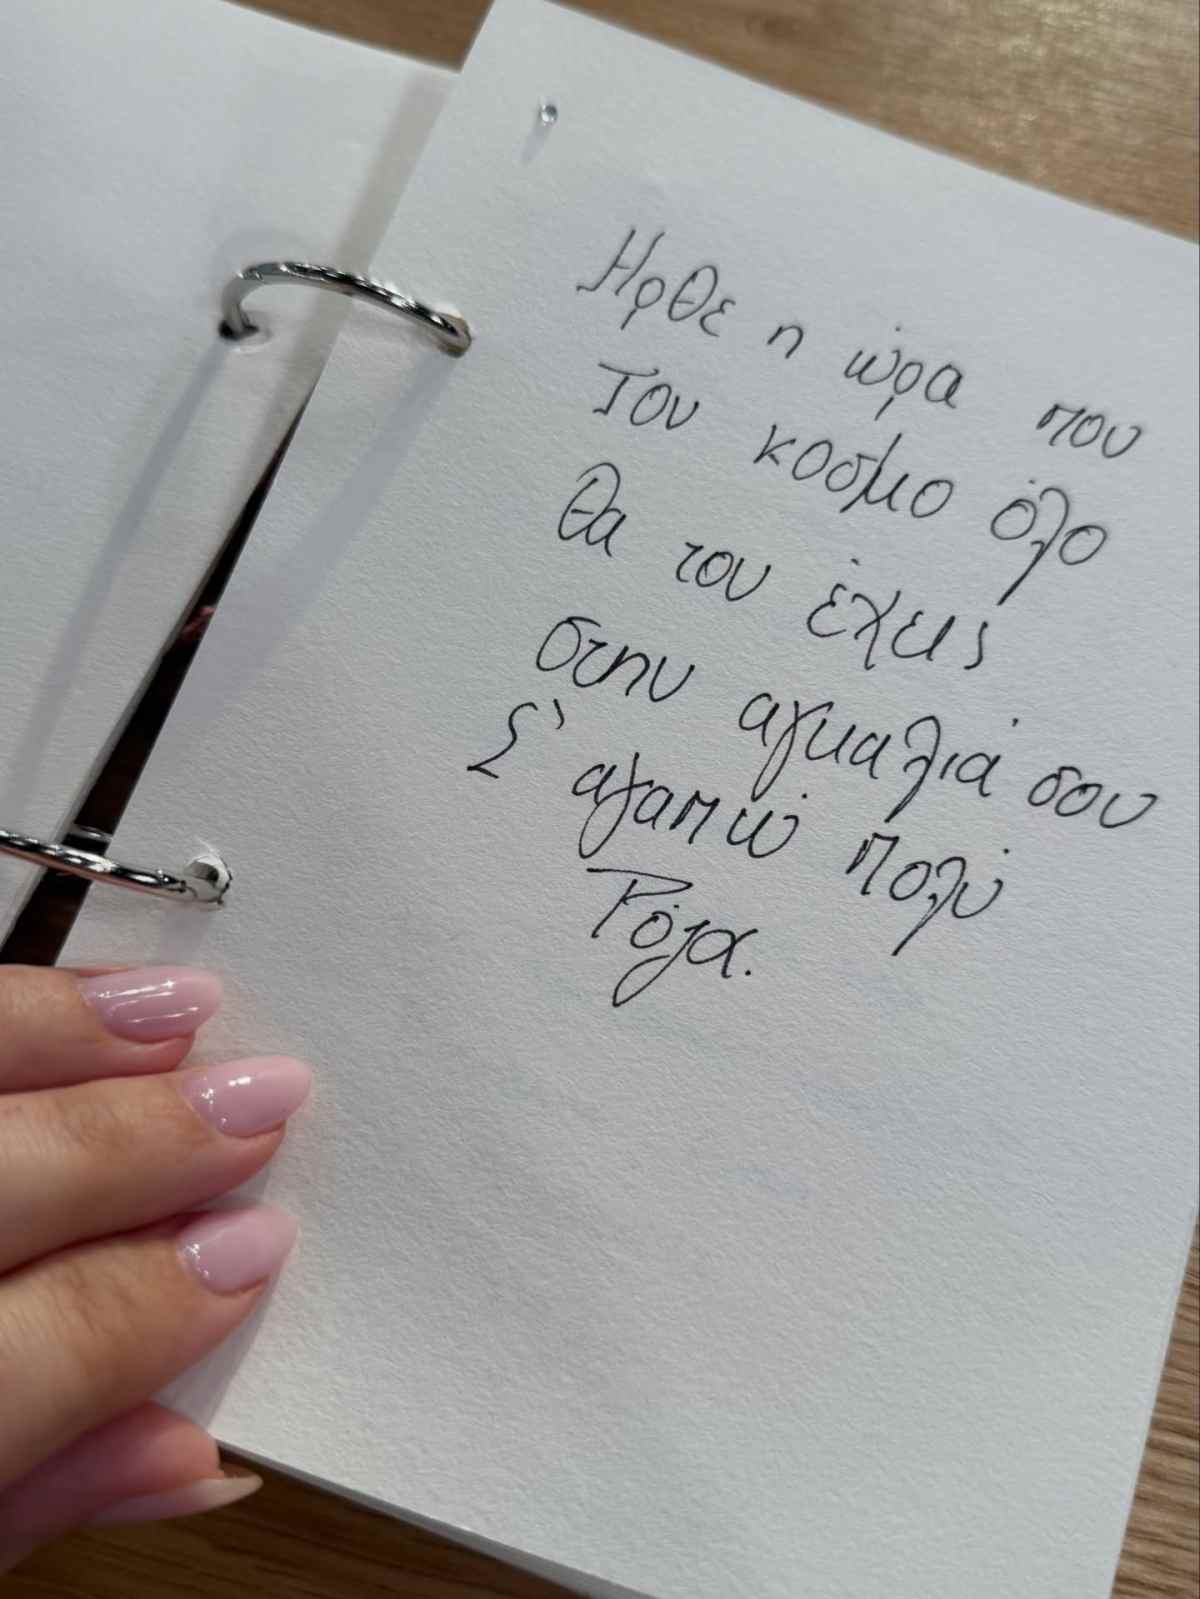 Ηρθε η ώρα που
Τον κοσμο όλο
θα τον έχεις
στην αγκαλιά σου
Σ' αγαπώ πολύ
Ρόζα.